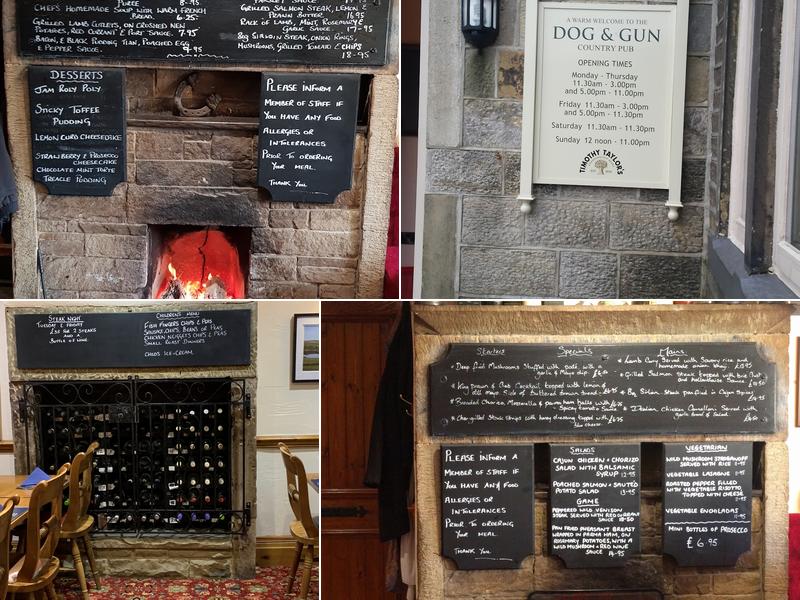 PUREE
8-95
CHEFS HOMEMADE SOUP WITH WARM
BREAD.
6-25
GRILLED LAMBS CUTLETS, ON CRUSHED NEW
POTATOES, RED CURRANT & PORT SAUCE. 7.95
BACON, & BLACK PUDDING FLAN, POACHED EGG
& PEPPER SAUCE.
GRILLED SALMON STEAK, LEMON &
PRAWN BUTTER. 16.95
RACK OF LAMB, MINT, ROSEMARY &
GARLIC SAUCE. 17-95
8OZ SIRLOIN STEAK, ONION RINGS,
MUSHROOMS, GRILLED TOMATO & CHIPS
18-95
DESSERTS
JAM ROLY POLY
STICKY TOFFEE
PUDDING
LEMON CURD CHEESECAKE
STRAWBERRY & PROSECCO
CHEESECAKE
CHOCOLATE MINT TORTE
TREACLE PUDDING
PLEASE INFORM A
MEMBER OF STAFF IF
YOU HAVE ANY FOOD
ALLERGIES OR
INTOLERANCES
PRIOR TO ORDERING
YOUR MEAL.
THANK YOU
A WARM WELCOME TO THE
DOG & GUN
COUNTRY PUB
OPENING TIMES
Monday - Thursday
11.30am - 3.00pm
and 5.00pm - 11.00pm
Friday 11.30am - 3.00pm
and 5.00pm - 11.30pm
Saturday 11.30am - 11.30pm
Sunday 12 noon - 11.00pm
TIMOTHY TAYLOR'S
STEAK NIGHT
TUESDAY & FRIDAY
£35 FOR 2 STEAKS
AND A
BOTTLE OF WINE
CHILDREN'S MENU
FISH FINGERS CHIPS & PEAS
SAUSAGE, CHIPS, BEANS OR PEAS
CHICKEN NUGGETS CHIPS & PEAS
SMALL ROAST DINNERS
CHILDS ICE-CREAM
Starters Specials Mains
Deep fried Mushrooms Stuffed with pate, with a
garlic & Mayo dip.
King Prawn & Crab Cocktail topped with lemon &
dill mayo. Side of buttered brown bread.
Breaded Chorizo, Mozzarella & parma ham balls with
Spicy tomato Sauce
Chargrilled Steak Strips with honey dressing topped with
blue cheese
Lamb Curry Served with Savoury rice and
homemade onion bhaji.
Grilled Salmon Steak topped with brie
and Hollandaise Sauce
8oz Sirloin Steak panfried in Cajun Spices
Italian Chicken Cannelloni Served with
garlic bread & Salad.
PLEASE INFORM A
MEMBER OF STAFF IF
YOU HAVE ANY FOOD
ALLERGIES OR
INTOLERANCES
PRIOR TO ORDERING
YOUR MEAL.
THANK YOU
SALADS
CAJUN CHICKEN & CHORIZO
SALAD WITH BALSAMIC
SYRUP 12.95
POACHED SALMON & SAUTÉD
POTATO SALAD
13.95
GAME
PEPPERED WILD VENISON
STEAK SERVED WITH REDCURRANT
SAUCE 18-50
PAN FRIED PHEASANT BREAST
WRAPPED IN PARMA HAM, ON
ROSEMARY POTATOES, WITH A
WILD MUSHROOM & RED WINE
SAUCE 14.95
VEGETARIAN
WILD MUSHROOM STROGANOFF
SERVED WITH RICE 11-95
VEGETABLE LASAGNE 11-95
ROASTED PEPPER FILLED
WITH VEGETABLE RISOTTO,
TOPPED WITH CHEESE
11-95
VEGETABLE ENCHILADAS
11-95
MINI BOTTLES OF PROSECCO
£6.95